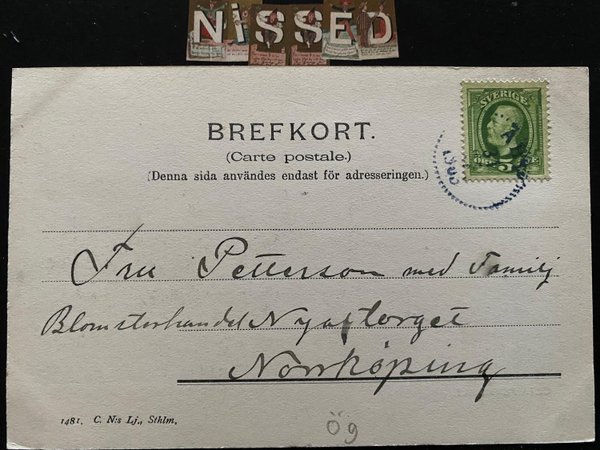 NiSSED
SVERIGE
5
BREFKORT.
(Carte postale.)
(Denna sida användes endast för adresseringen.)
Fru Petterson med Familj
Blomsterhandel Nya torget
Norrköping
1481. C. N:s Lj., Sthlm.
Ög